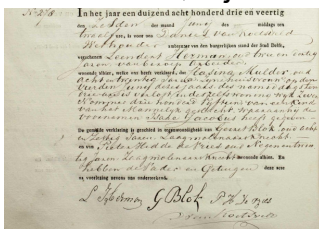 No 278.
In het jaar een duizend acht honderd drie en veertig
den zesden der maand Junij des middags ten
twaalf ure, is voor ons Daniel van Koetsveld
Wethouder ambtenaar van den burgerlijken stand der Stad Delft,
verschenen Leendert Herman, oud twee en dertig
jaren, van beroep
wonende alhier, welke ons heeft verklaard, dat Gesina Mulder, oud
acht en twintig jaren, zijne huisvrouw op den
vierden Junij dezes jaars des namiddags ten
is verlost in de wijk twee
Nommer drie honderd vijftien van een kind
van het Mannelijk geslacht, waaraan hij de
voornamen Jacobus heeft gegeven
De gezegde verklaring is geschied in tegenwoordigheid van Gerrit Blok, oud acht
en veertig jaren,
en van Pieter de Vries, oud negenentwin-
tig jaren, wonende alhier. En
hebben de Vader en Getuigen deze acte
na voorlezing nevens ons onderteekend.
L. Herman G Blok P. H. de Vries